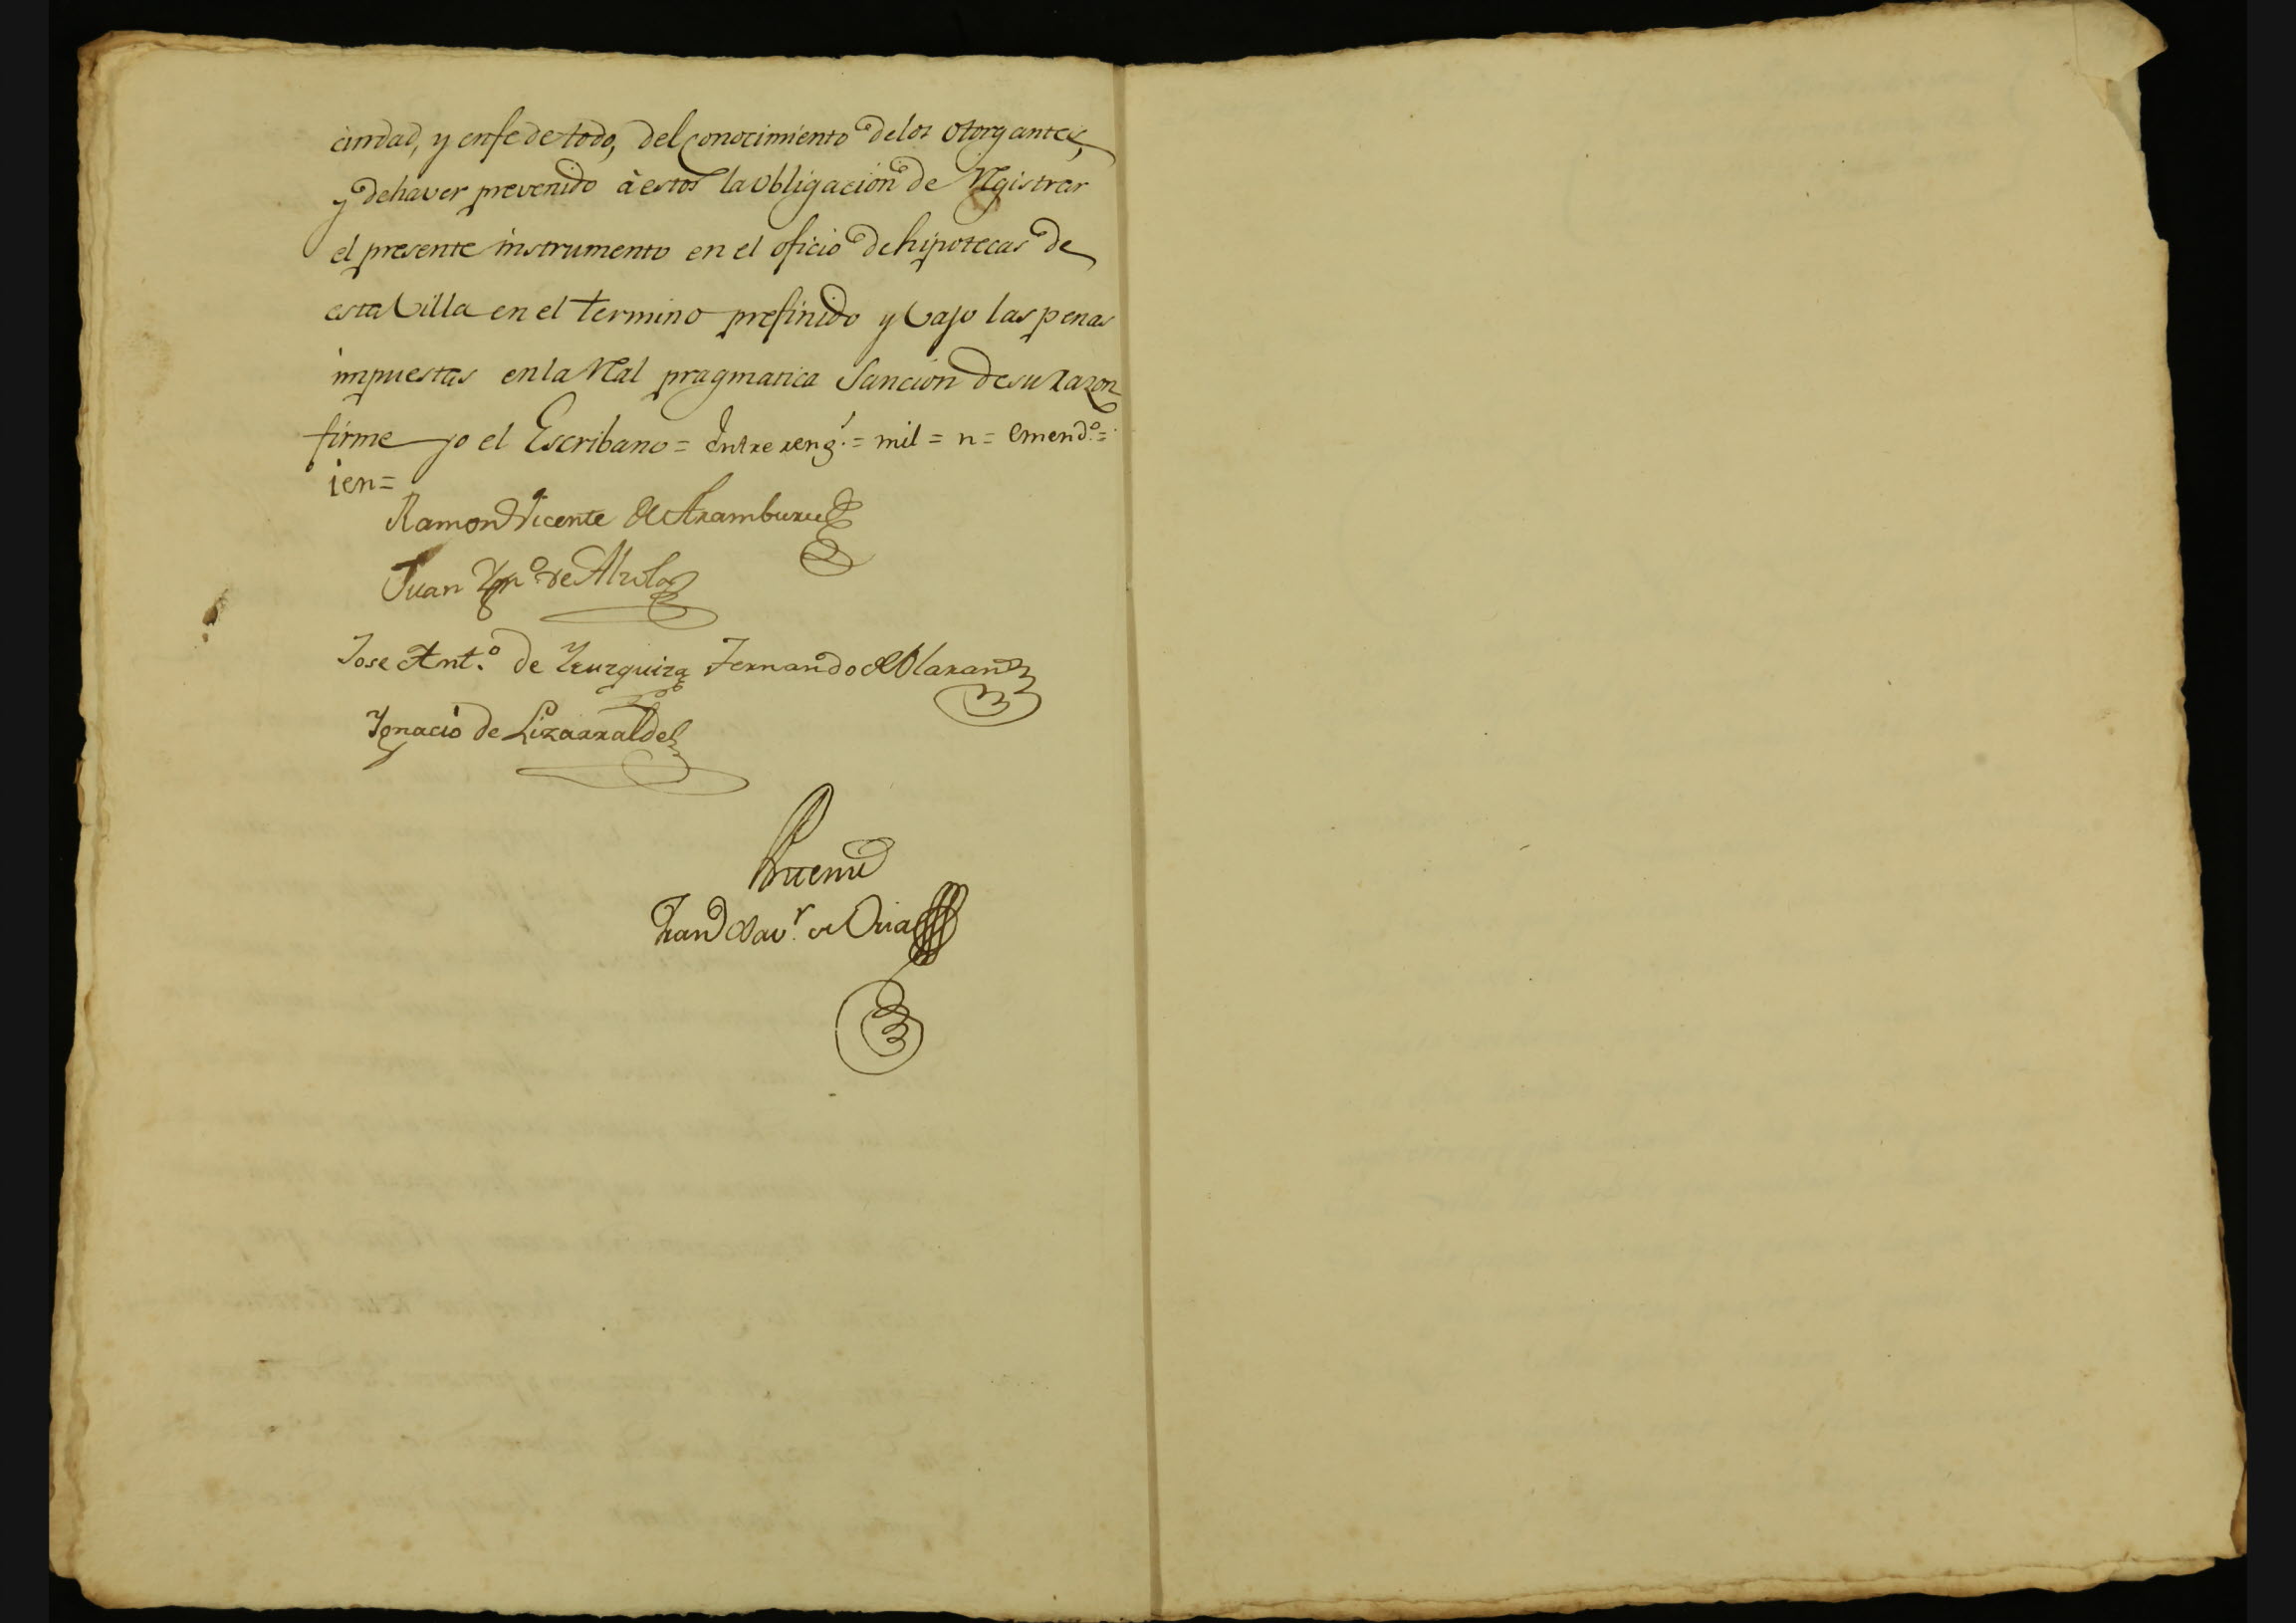 cindad, y enfe de todo, del conocimiento de los otorgantes,
y de haver prevenido à estos la obligacion de Registrar
el presente instrumento en el oficio de hipotecas de
esta Villa en el termino prefinido y vajo las penas
impuestas en la Real pragmatica Sancion de su razon
firme yo el Escribano = Entre reng.ˢ = mil = n = Emend.º =
ien =
Ramon Vicente de Aramburu
Juan de
Jose Ant.º de Yeurquiza Fernando de Olaran
Ignacio de Lizarralde
Antemi
Fran Xav.r de Oria